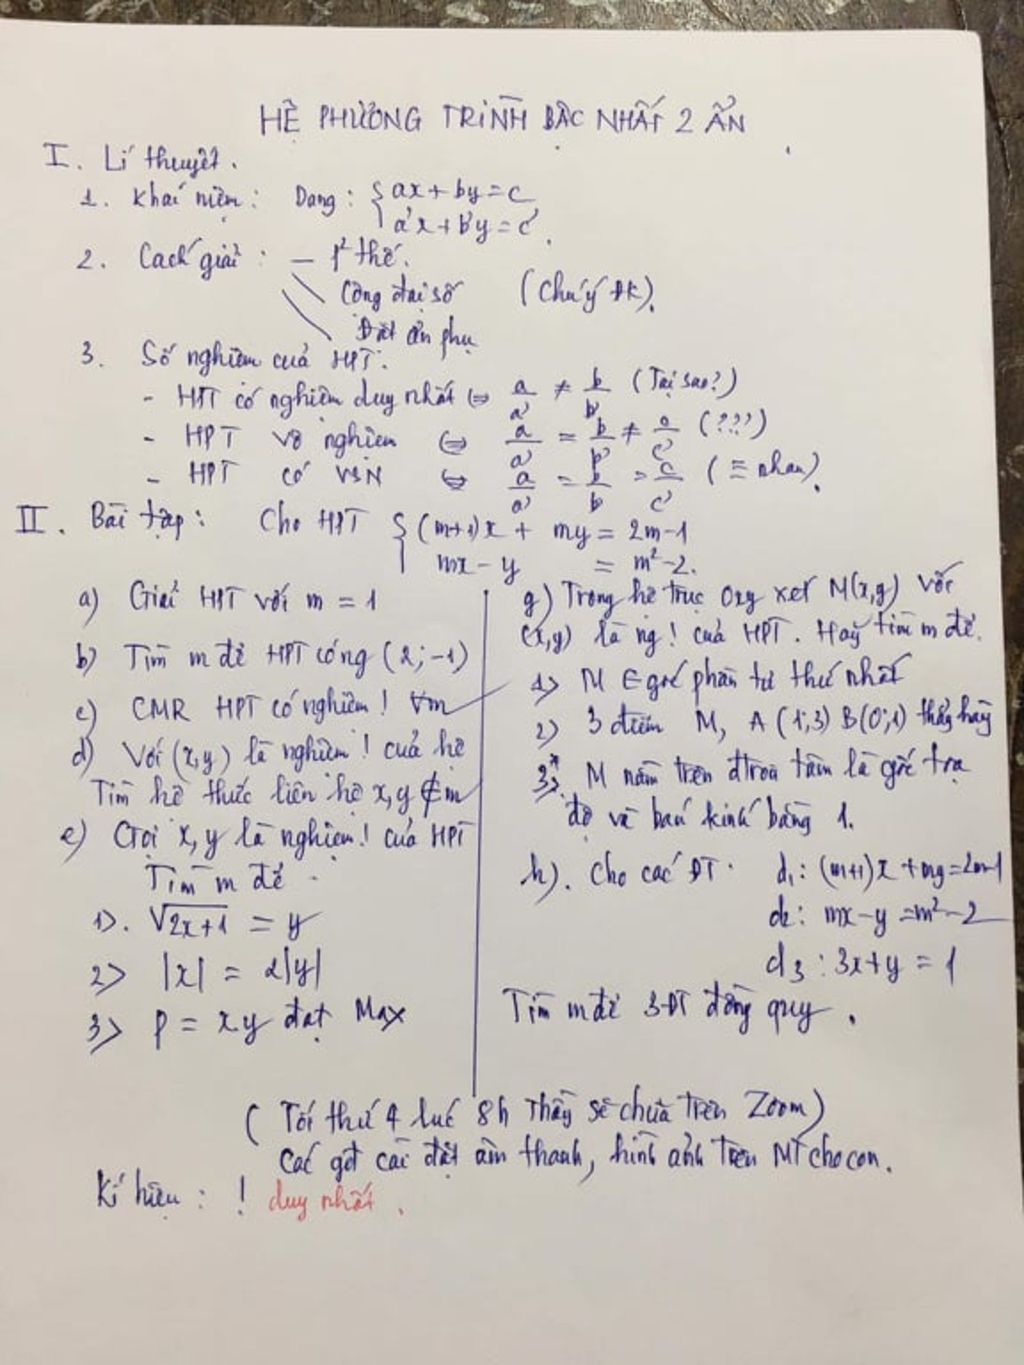 HỆ PHƯƠNG TRÌNH BẬC NHẤT 2 ẨN
I. Lí thuyết.
1. Khái niệm: Dạng: { ax + by = c
a'x + b'y = c'.
2. Cách giải: — P² thế.
Cộng đại số (Chú ý ĐK).
Đặt ẩn phụ
3. Số nghiệm của HPT:
- HPT có nghiệm duy nhất ⇔ a/a' ≠ b/b' (Tại sao?)
- HPT vô nghiệm ⇔ a/a' = b/b' ≠ c/c' (???)
- HPT có VSN ⇔ a/a' = b/b = c/c' (≡ nhau).
II. Bài tập: Cho HPT { (m+1)x + my = 2m-1
mx - y = m²-2.
a) Giải HPT với m = 1
b) Tìm m để HPT có ng (2;-1)
c) CMR HPT có nghiệm ! ∀m
d) Với (x,y) là nghiệm ! của hệ
Tìm hệ thức liên hệ x,y ∉ m
e) Gọi x,y là nghiệm ! của HPT
Tìm m để
1). √2x+1 = y
2> |x| = 2|y|
3> P = xy đạt Max
g) Trong hệ trục Oxy xét M(x,y) với
(x,y) là ng ! của HPT. Hãy tìm m để.
1> M ∈ góc phần tư thứ nhất
2> 3 điểm M, A (1;3) B(0;1) thẳng hàng
3>* M nằm trên đtròn tâm là gốc tọa
độ và bán kính bằng 1.
h). Cho các ĐT. d₁: (m+1)x + my = 2m-1
d₂: mx - y = m²-2
d₃: 3x+y = 1
Tìm m để 3 ĐT đồng quy.
(Tối thứ 4 lúc 8h Thầy sẽ chữa trên Zoom)
Các gđ cài đặt âm thanh, hình ảnh trên MT cho con.
Kí hiệu: ! duy nhất.